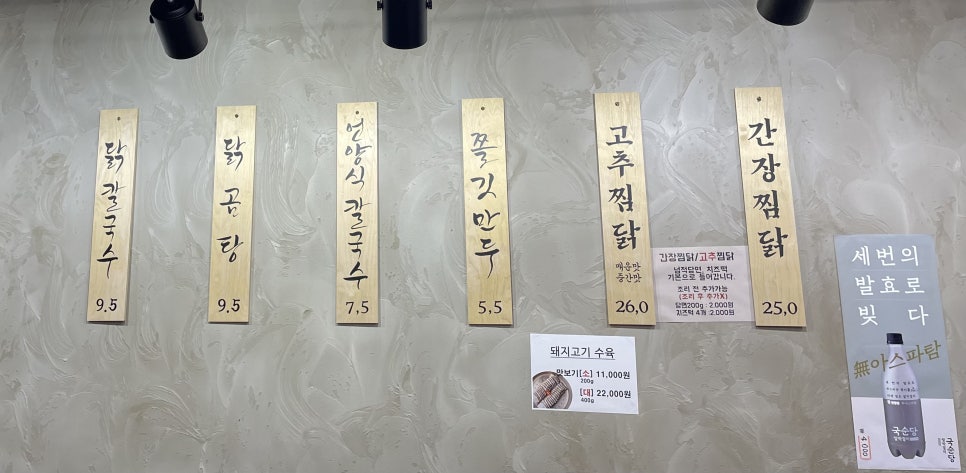 닭칼국수
9.5
닭곰탕
9.5
언양식칼국수
7,5
쫄깃만두
5,5
고추찜닭
매운맛
중간맛
26,0
간장찜닭
25,0
간장찜닭/고추찜닭
넙적당면, 치즈떡
기본으로 들어갑니다.
조리 전 추가가능
(조리 후 추가X)
당면200g : 2,000원
치즈떡 4개 : 2,000원
돼지고기 수육
맛보기[소] 11,000원
200g
[대] 22,000원
400g
세번의
발효로
빚다
無아스파탐
국순당
국순당